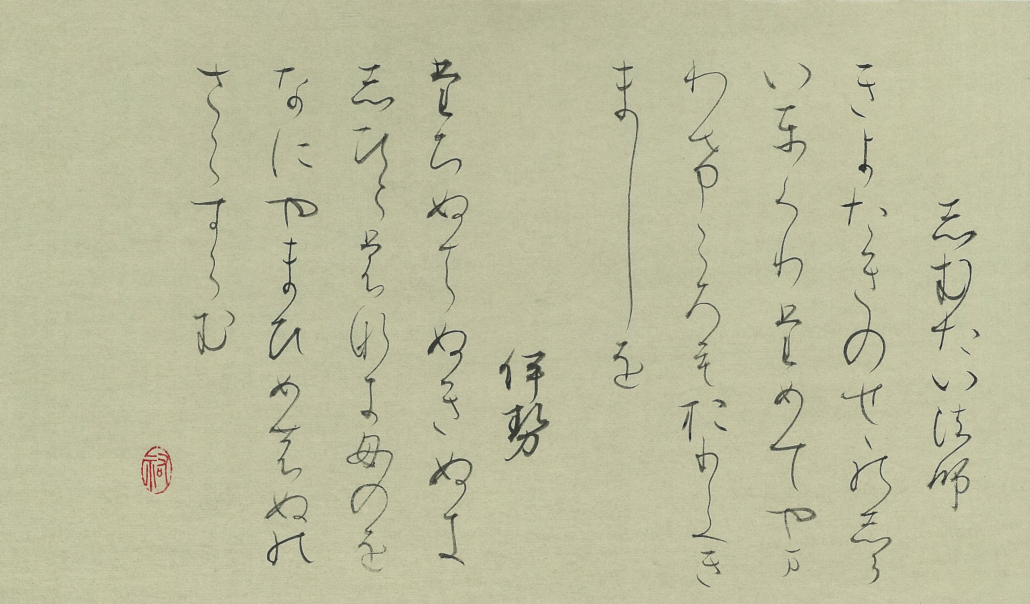 志むたい法師
きよたきのせゝの志ら
いとくりためてやま
わけころもおりてき
ましを
伊勢
たちぬはぬきぬき
志ひともなきものを
なにやまひめのぬの
さらすらむ